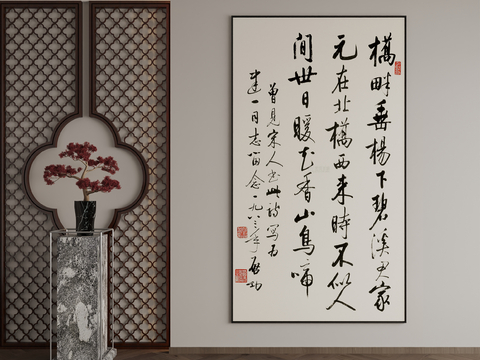 橋畔垂楊下碧溪君家
元在北橋西来時不似人
间世日暖花香山鳥啼
曾見宋人書此詩寫为
建一同志留念一九八三年启功